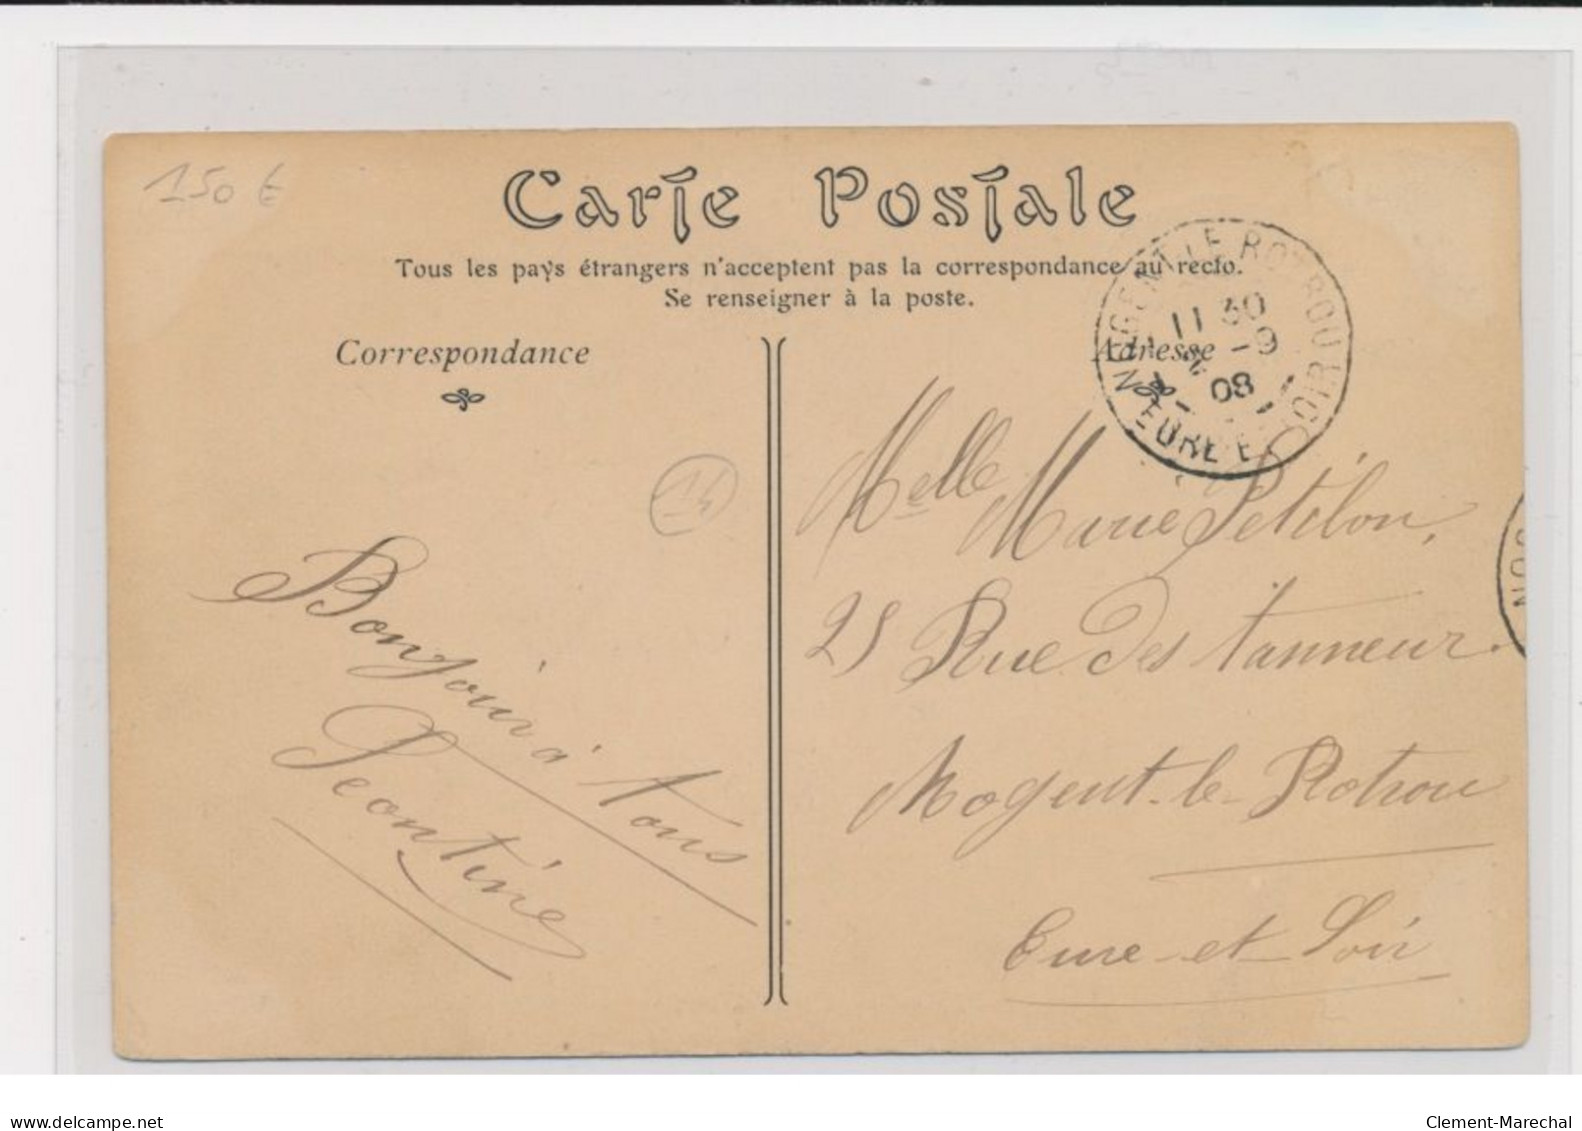 150 €
Carte Postale
Tous les pays étrangers n'acceptent pas la correspondance au recto.
Se renseigner à la poste.
Correspondance
Adresse
NOGENT-LE-ROTROU
11 30
-9
08
EURE ET LOIR
Melle Marie Petilon,
25 Rue des tanneur
Nogent-le-Rotrou
Eure-et-Loir
Bonjour à tous
Leontine
delcampe.net
Clement-Marechal